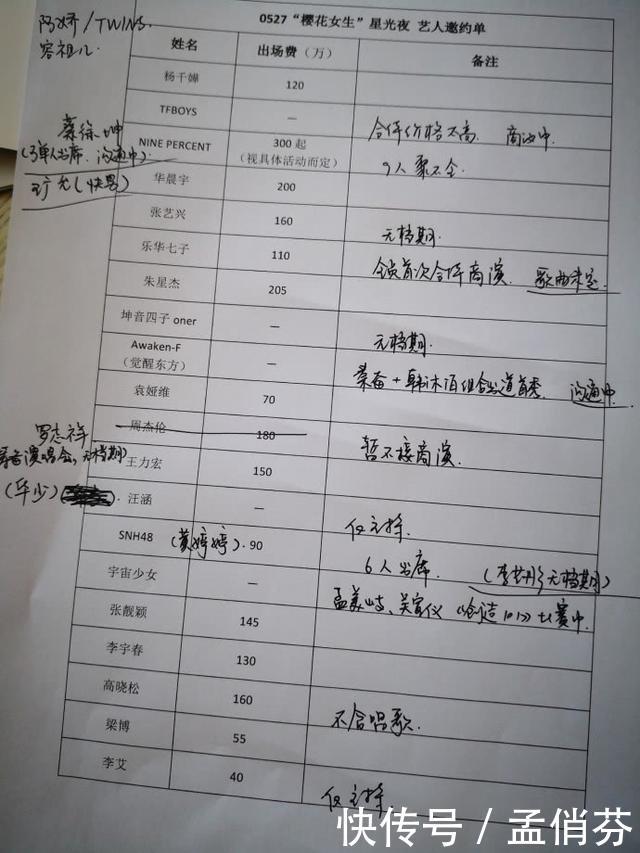 阿娇/TWINS
容祖儿
0527“樱花女生”星光夜 艺人邀约单
姓名 出场费（万） 备注
杨千嬅 120
TFBOYS — 合体价格太高 商洽中
蔡徐坤
(单人出席 沟通中)
NINE PERCENT 300起
（视具体活动而定） 9人聚不全
(快男)
华晨宇 200
张艺兴 160 无档期
乐华七子 110 全员首次合体商演
朱星杰 205
坤音四子 oner — 无档期
Awaken-F
（觉醒东方） — 秦奋+韩沐伯组合出道首秀 沟通中
袁娅维 70
周杰伦 180 暂不接商演
罗志祥
演唱会,无档期)
王力宏 150
(华少)
汪涵 — 仅主持
SNH48 (黄婷婷) 90 6人出席 (李艺彤无档期)
宇宙少女 — 孟美岐、吴宣仪《创造101》比赛中
张靓颖 145
李宇春 130
高晓松 160 不含唱歌
梁博 55
李艾 40 仅主持
快传号 / 孟俏芬